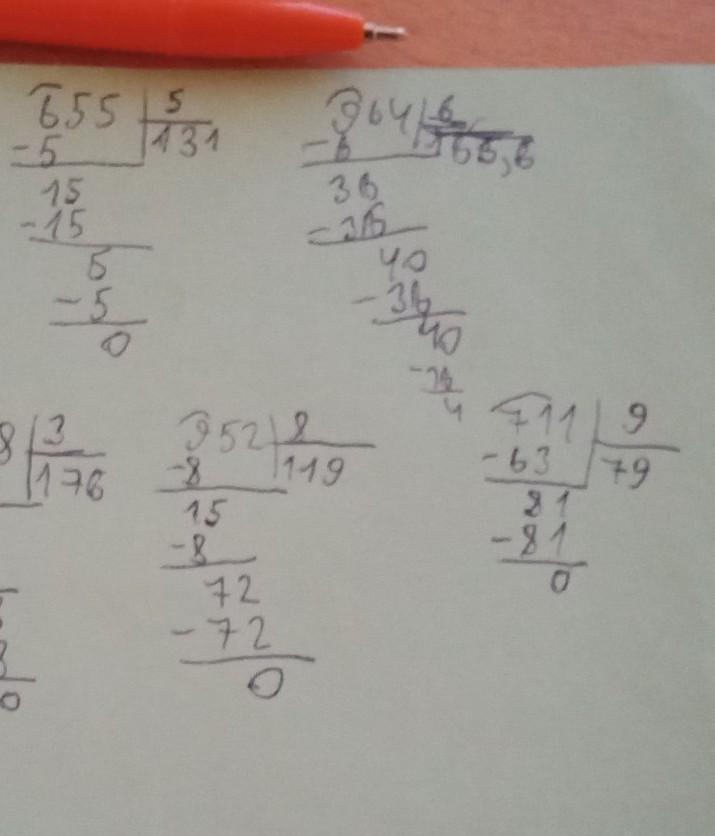 655 5
-5 131
15
-15
5
-5
0
964 6
-6 166,6
36
-36
40
-36
40
-36
4
8 3
176
0
952 8
-8 119
15
-8
72
-72
0
711 9
-63 79
81
-81
0